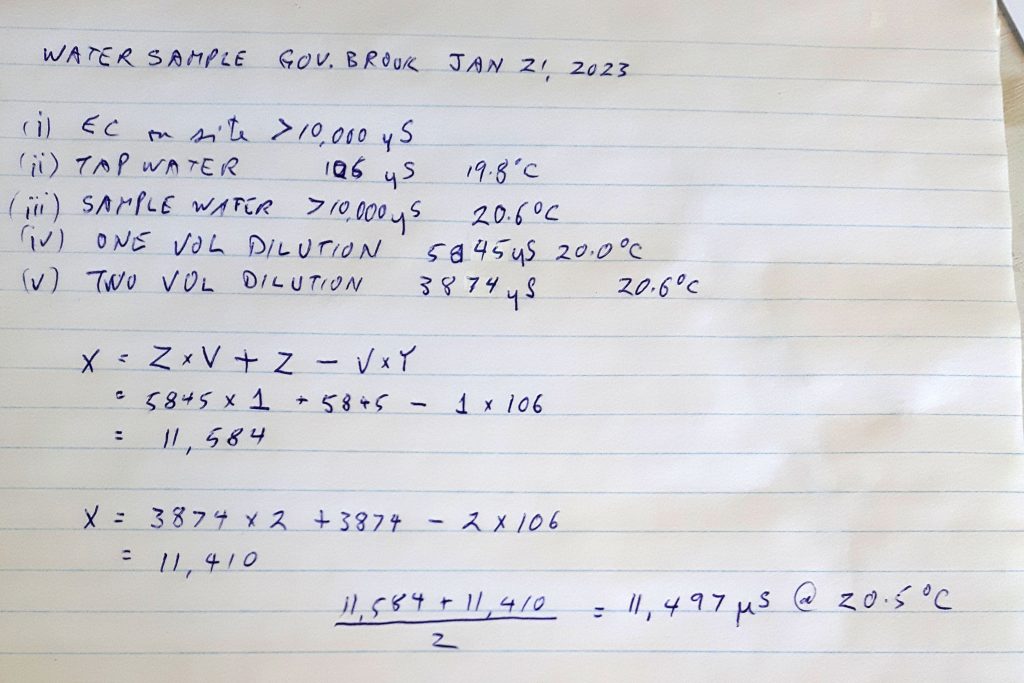 WATER SAMPLE GOV. BROOK JAN 21, 2023
(i) EC on site >10,000 µS
(ii) TAP WATER 106 µS 19.8°C
(iii) SAMPLE WATER >10,000 µS 20.6°C
(iv) ONE VOL DILUTION 5845 µS 20.0°C
(v) TWO VOL DILUTION 3874 µS 20.6°C
X = Z×V + Z - V×Y
= 5845 × 1 + 5845 - 1 × 106
= 11,584
X = 3874 × 2 + 3874 - 2 × 106
= 11,410
11,584 + 11,410 = 11,497 µS @ 20.5°C
2